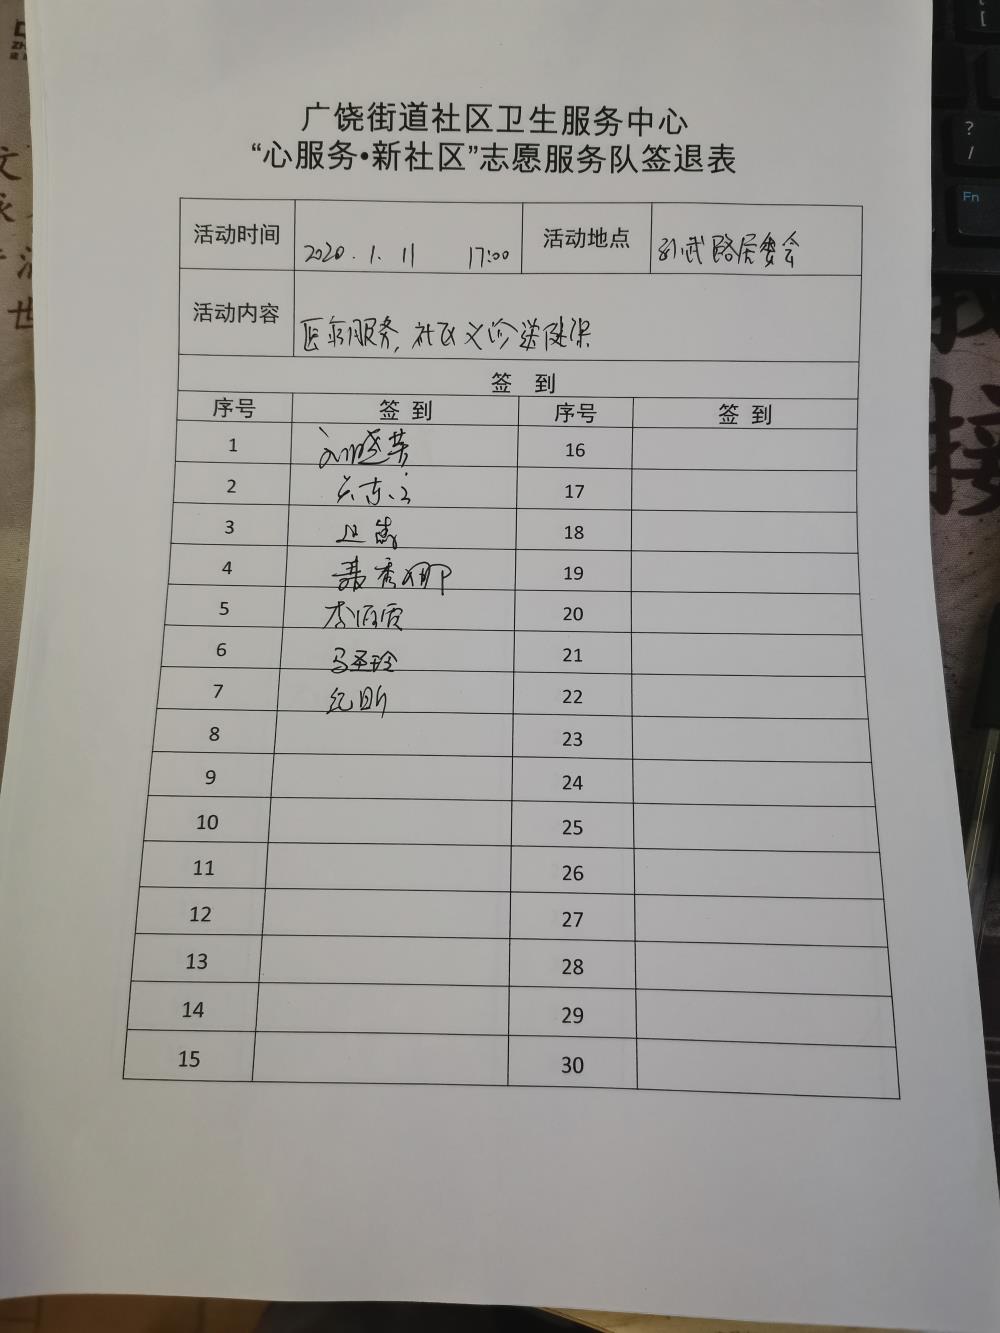 广饶街道社区卫生服务中心
“心服务•新社区”志愿服务队签退表
活动时间 2020.1.11 17:00 活动地点 孙武路居委会
活动内容 医疗服务,社区义诊送健康
签 到
序号 签到 序号 签到
1 16
2 17
3 18
4 聂秀娜 19
5 20
6 马圣玲 21
7 22
8 23
9 24
10 25
11 26
12 27
13 28
14 29
15 30
?
/
Fn
接